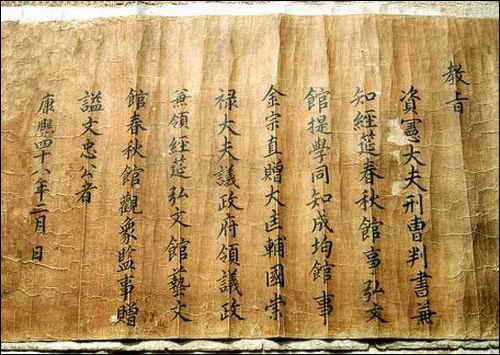 教旨
資憲大夫刑曹判書兼
知經筵春秋館事弘文
館提學同知成均館事
金宗直贈大匡輔國崇
禄大夫議政府領議政
兼領經筵弘文館藝文
館春秋館觀象監事贈
謚文忠公者
康熙四十八年二月 日